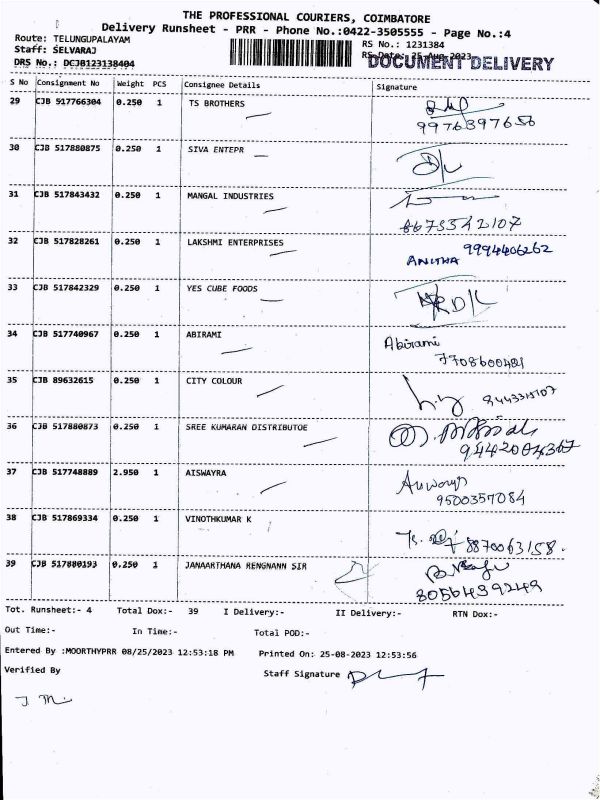 THE PROFESSIONAL COURIERS, COIMBATORE
Delivery Runsheet - PRR - Phone No.:0422-3505555 - Page No.:4
Route: TELUNGUPALAYAM
RS No.: 1231384
Staff: SELVARAJ
RS Date: 25-Aug-2023
DOCUMENT DELIVERY
DRS No.: DCJB123138404
S No Consignment No Weight PCS Consignee Details Signature
29 CJB 517766304 0.250 1 TS BROTHERS
9976397656
30 CJB 517880875 0.250 1 SIVA ENTEPR
31 CJB 517843432 0.250 1 MANGAL INDUSTRIES
8675542107
32 CJB 517828261 0.250 1 LAKSHMI ENTERPRISES
ANITHA 9994406262
33 CJB 517842329 0.250 1 YES CUBE FOODS
34 CJB 517740967 0.250 1 ABIRAMI
Abirami
35 CJB 89632615 0.250 1 CITY COLOUR
36 CJB 517880873 0.250 1 SREE KUMARAN DISTRIBUTOE
37 CJB 517748889 2.950 1 AISWAYRA
9500357084
38 CJB 517869334 0.250 1 VINOTHKUMAR K
8870063158.
39 CJB 517880193 0.250 1 JANAARTHANA RENGNANN SIR
8056439249
Tot. Runsheet:- 4 Total Dox:- 39 I Delivery:- II Delivery:- RTN Dox:-
Out Time:- In Time:- Total POD:-
Entered By :MOORTHYPRR 08/25/2023 12:53:18 PM Printed On: 25-08-2023 12:53:56
Verified By Staff Signature